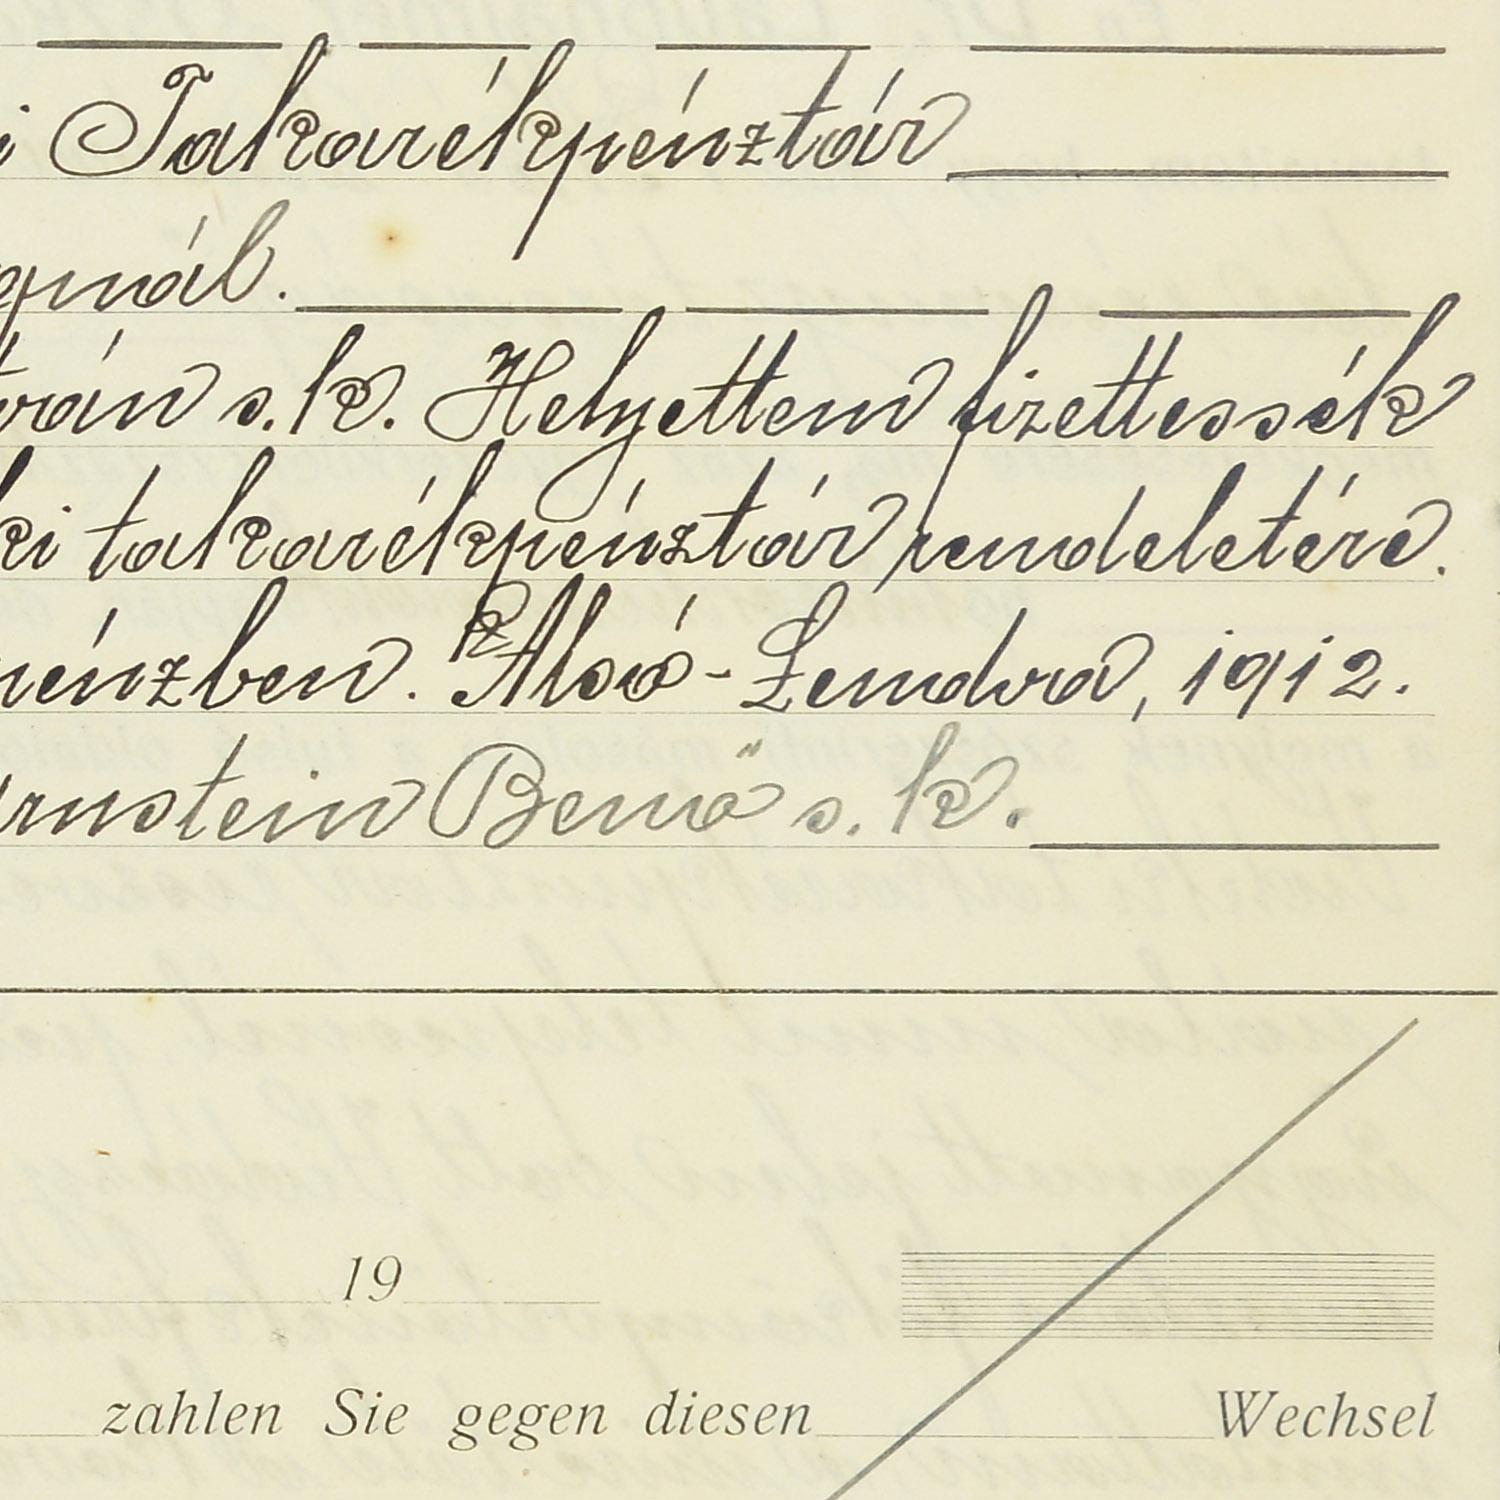 i Takarékpénztár
gnál.
ván s.k. Helyettem fizettessék
ki takarékpénztár rendeletére.
pénzben. Alsó-Lendva, 1912.
rnstein Benő s.k.
19
zahlen Sie gegen diesen Wechsel